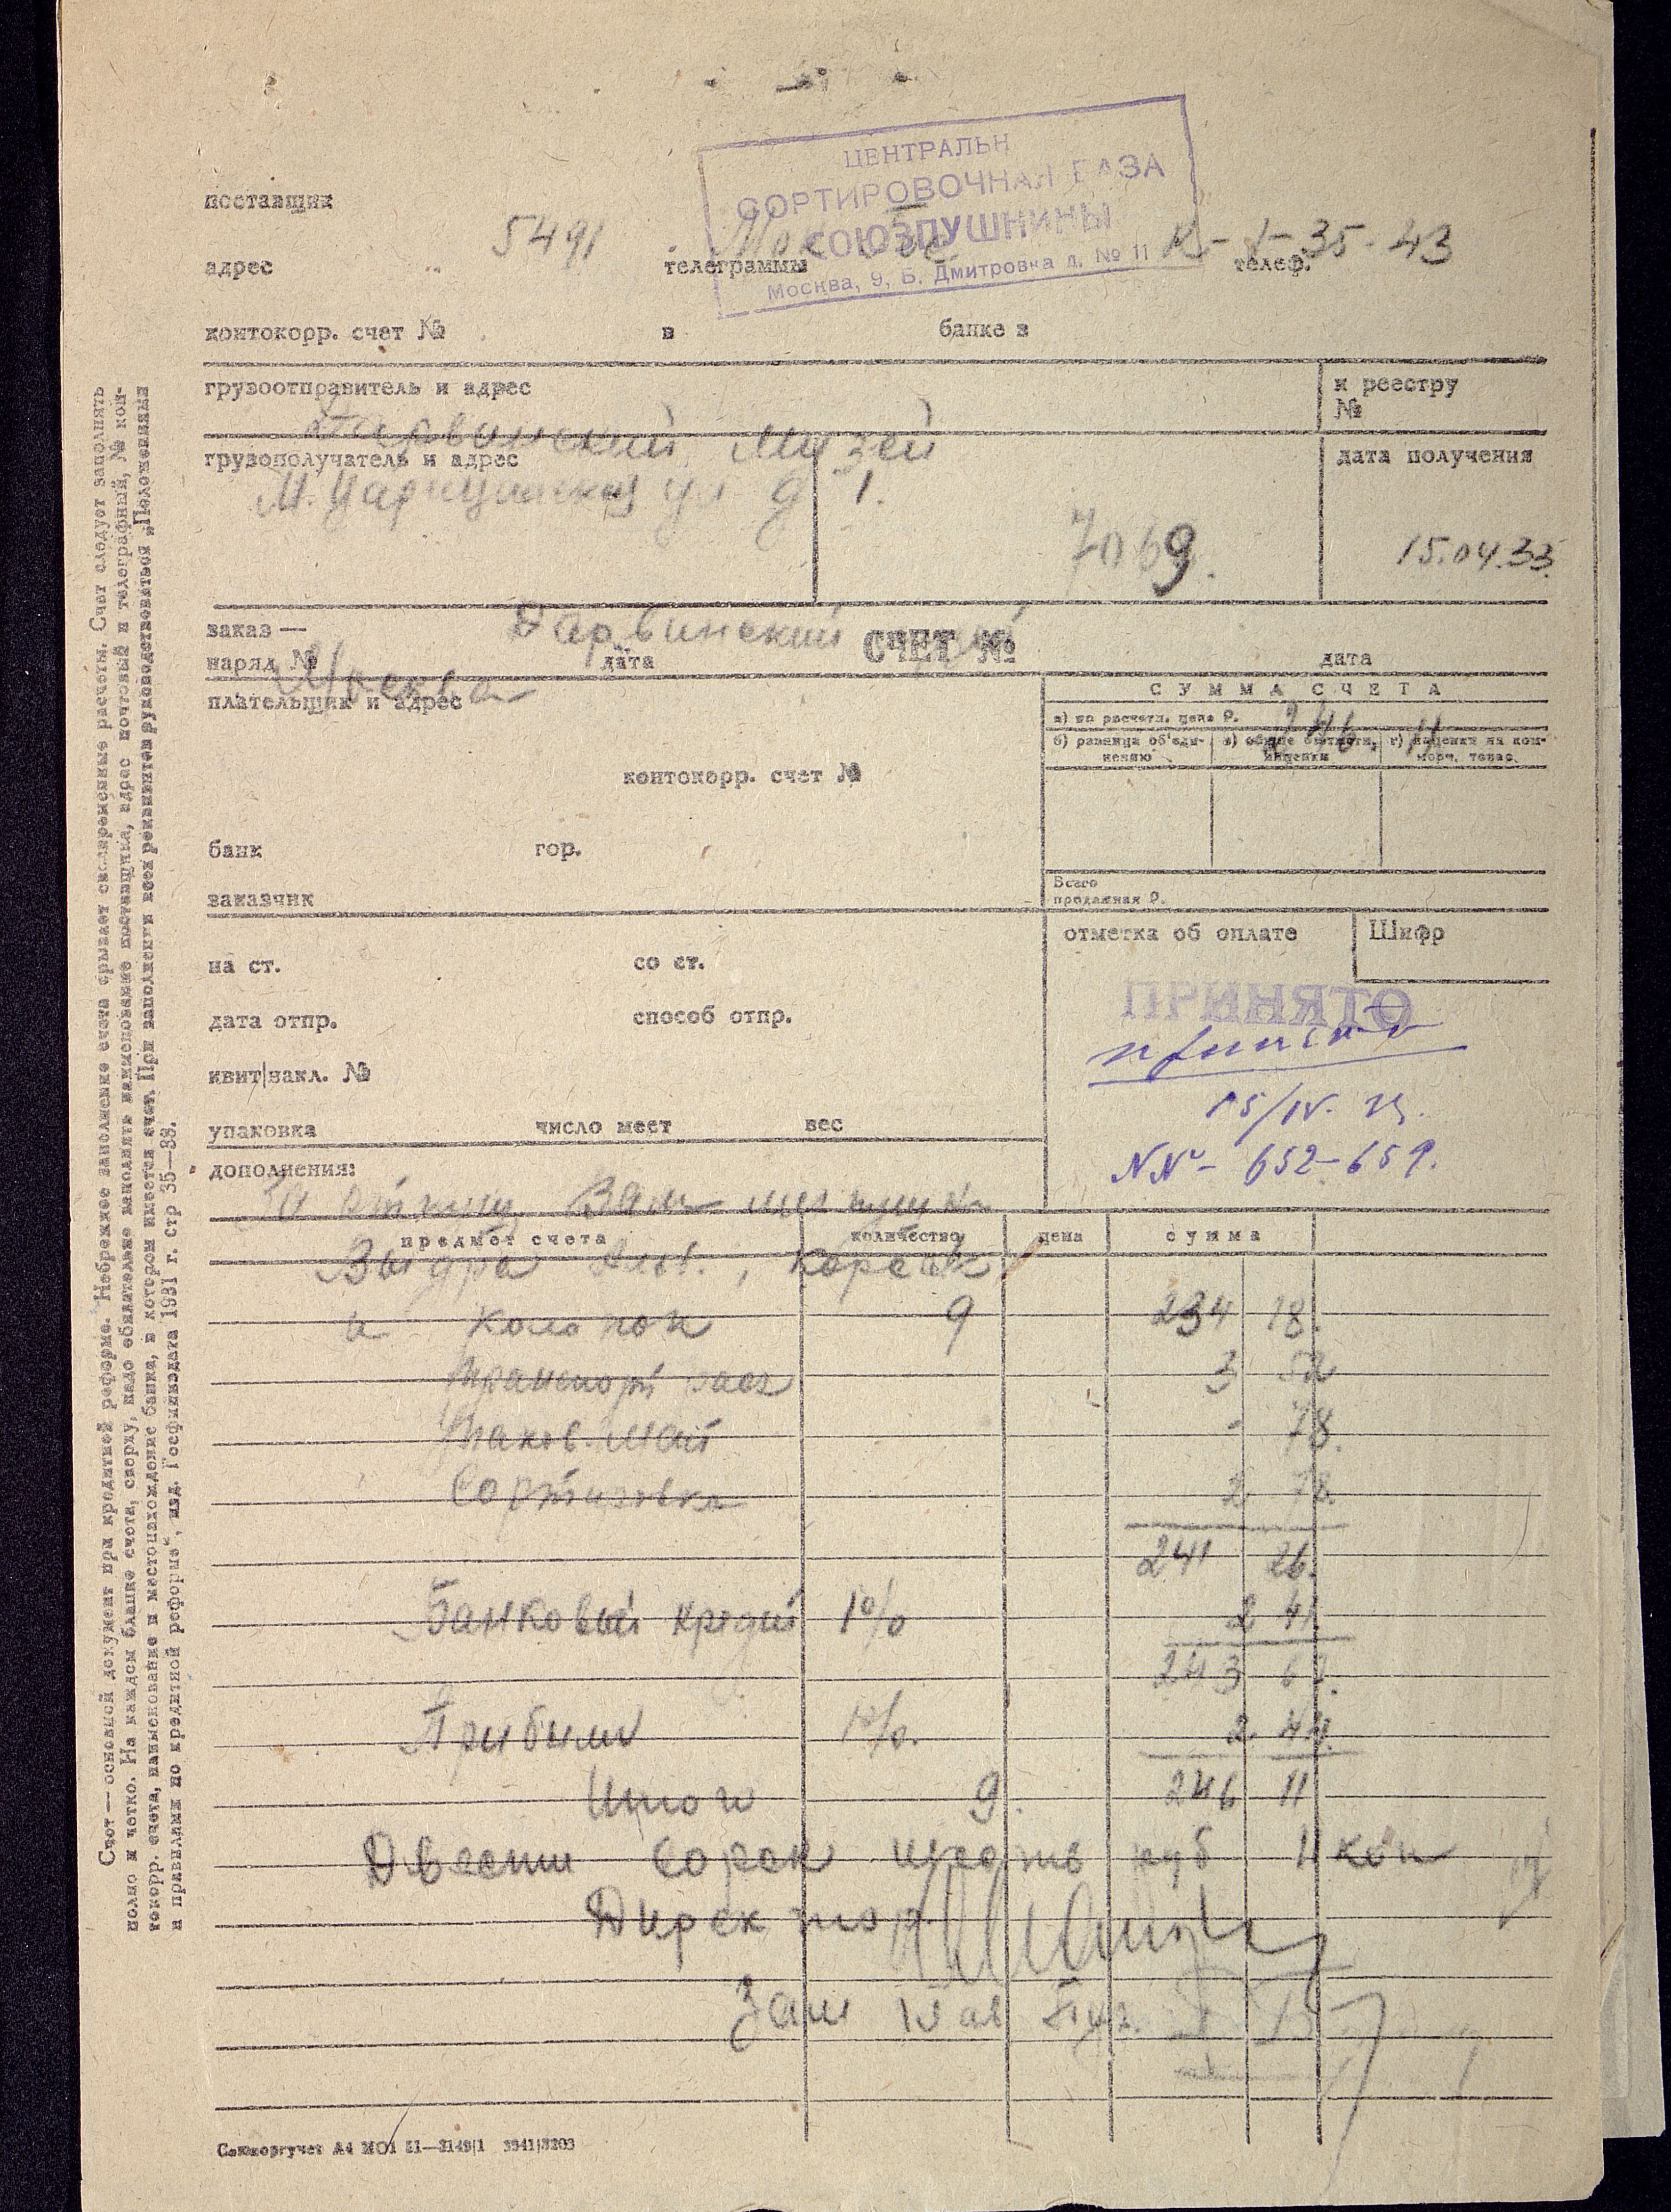 ЦЕНТРАЛЬН
СОРТИРОВОЧНАЯ БАЗА
СОЮЗПУШНИНЫ
Москва, 9, Б. Дмитровка д. № 11
поставщик
5491
К-1-35-43
адрес
телеграммы
телеф.
контокорр. счет № в банке в
грузоотправитель и адрес
к реестру
№
Дарвинский Музей
грузополучатель и адрес
дата получения
М. Царицынская ул д 1.
7069.
15.04.33.
заказ —
Дарвинский
наряд № дата СЧЕТ № дата
Москва
плательщик и адрес
СУММА СЧЕТА
а) по расчетн. цене Р. 246 11
б) разница об'еди-
нению
г) наценка на ком-
мерч. товар.
контокорр. счет №
банк гор.
заказчик
Всего
продажная Р.
отметка об оплате
Шифр
на ст. со ст.
ПРИНЯТО
дата отпр. способ отпр.
принято
квит|накл. №
15/IV. 33.
упаковка число мест вес
NN - 652-659.
дополнения:
За отпущ. Вам
предмет счета количество цена сумма
Выдра
и Колонок 9 234 18.
Транспорт 3 52
78.
Сортировка 2 78.
241 26.
Банковый кредит 1% 2 41.
243 67.
Прибыли 1%. 2 44.
Итого 9. 246 11
Двести сорок шесть руб 11 коп
Директор
Зам Глав Бух.
Союзоргучет А4 МО1 21—2149|1 3341|3203
Счет — основной документ при кредитной реформе. Небрежное заполнение счета срывает своевременные расчеты. Счет следует заполнять
полно и четко. На каждом бланке счета, сверху, надо обязательно заполнять наименование поставщика, адрес почтовый и телеграфный, № кон-
токорр. счета, наименование и местонахождение банка, в котором имеется счет. При заполнении всех реквизитов руководствоваться „Положениями
и правилами по кредитной реформе“, изд. Госфиниздата 1931 г. стр 35—38.